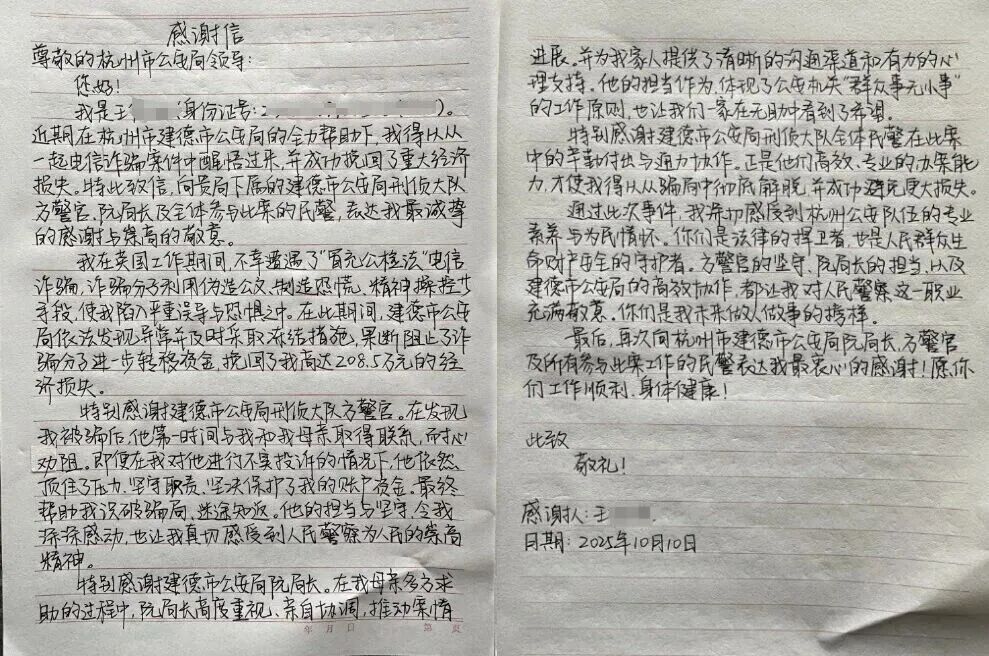 感谢信
尊敬的杭州市公安局领导:
您好!
我是王 (身份证号:2 )。
近期在杭州市建德市公安局的全力帮助下,我得以从
一起电信诈骗案件中醒悟过来,并成功挽回了重大经济
损失。特此致信,向贵局下属的建德市公安局刑侦大队
方警官、阮局长及全体参与此案的民警,表达我最诚挚
的感谢与崇高的敬意。
我在英国工作期间,不幸遭遇了“冒充公检法”电信
诈骗,诈骗分子利用伪造公文、制造恐慌、精神操控等
手段,使我陷入严重误导与恐惧之中。在此期间,建德市公安
局依法发现异常并及时采取冻结措施,果断阻止了诈
骗分子进一步转移资金,挽回了我高达208.5万元的经
济损失。
特别感谢建德市公安局刑侦大队方警官。在发现
我被骗后,他第一时间与我和我母亲取得联系,耐心
劝阻。即便在我对他进行不实投诉的情况下,他依然
顶住了压力、坚守职责、坚决保护了我的账户资金。最终
帮助我识破骗局、迷途知返。他的担当与坚守,令我
深深感动,也让我真切感受到人民警察为人民的崇高
精神。
特别感谢建德市公安局阮局长。在我母亲多方求
助的过程中,阮局长高度重视、亲自协调,推动案情
年 月 日 第 页
进展。并为我家人提供了清晰的沟通渠道和有力的心
理支持。他的担当作为,体现了公安机关“群众事无小事”
的工作原则,也让我们一家在无助中看到了希望。
特别感谢建德市公安局刑侦大队全体民警在此案
中的辛勤付出与通力协作。正是他们高效、专业的办案能
力,才使我得以从骗局中彻底解脱,并成功避免更大损失。
通过此次事件,我深切感受到杭州公安队伍的专业
素养与为民情怀。你们是法律的捍卫者,也是人民群众生
命财产安全的守护者。方警官的坚守、阮局长的担当、以及
建德市公安局的高效协作,都让我对人民警察这一职业
充满敬意。你们是我未来做人做事的榜样。
最后,再次向杭州市建德市公安局阮局长、方警官
及所有参与此案工作的民警表达我最衷心的感谢!愿你
们工作顺利、身体健康!
此致
敬礼!
感谢人:王
日期:2025年10月10日